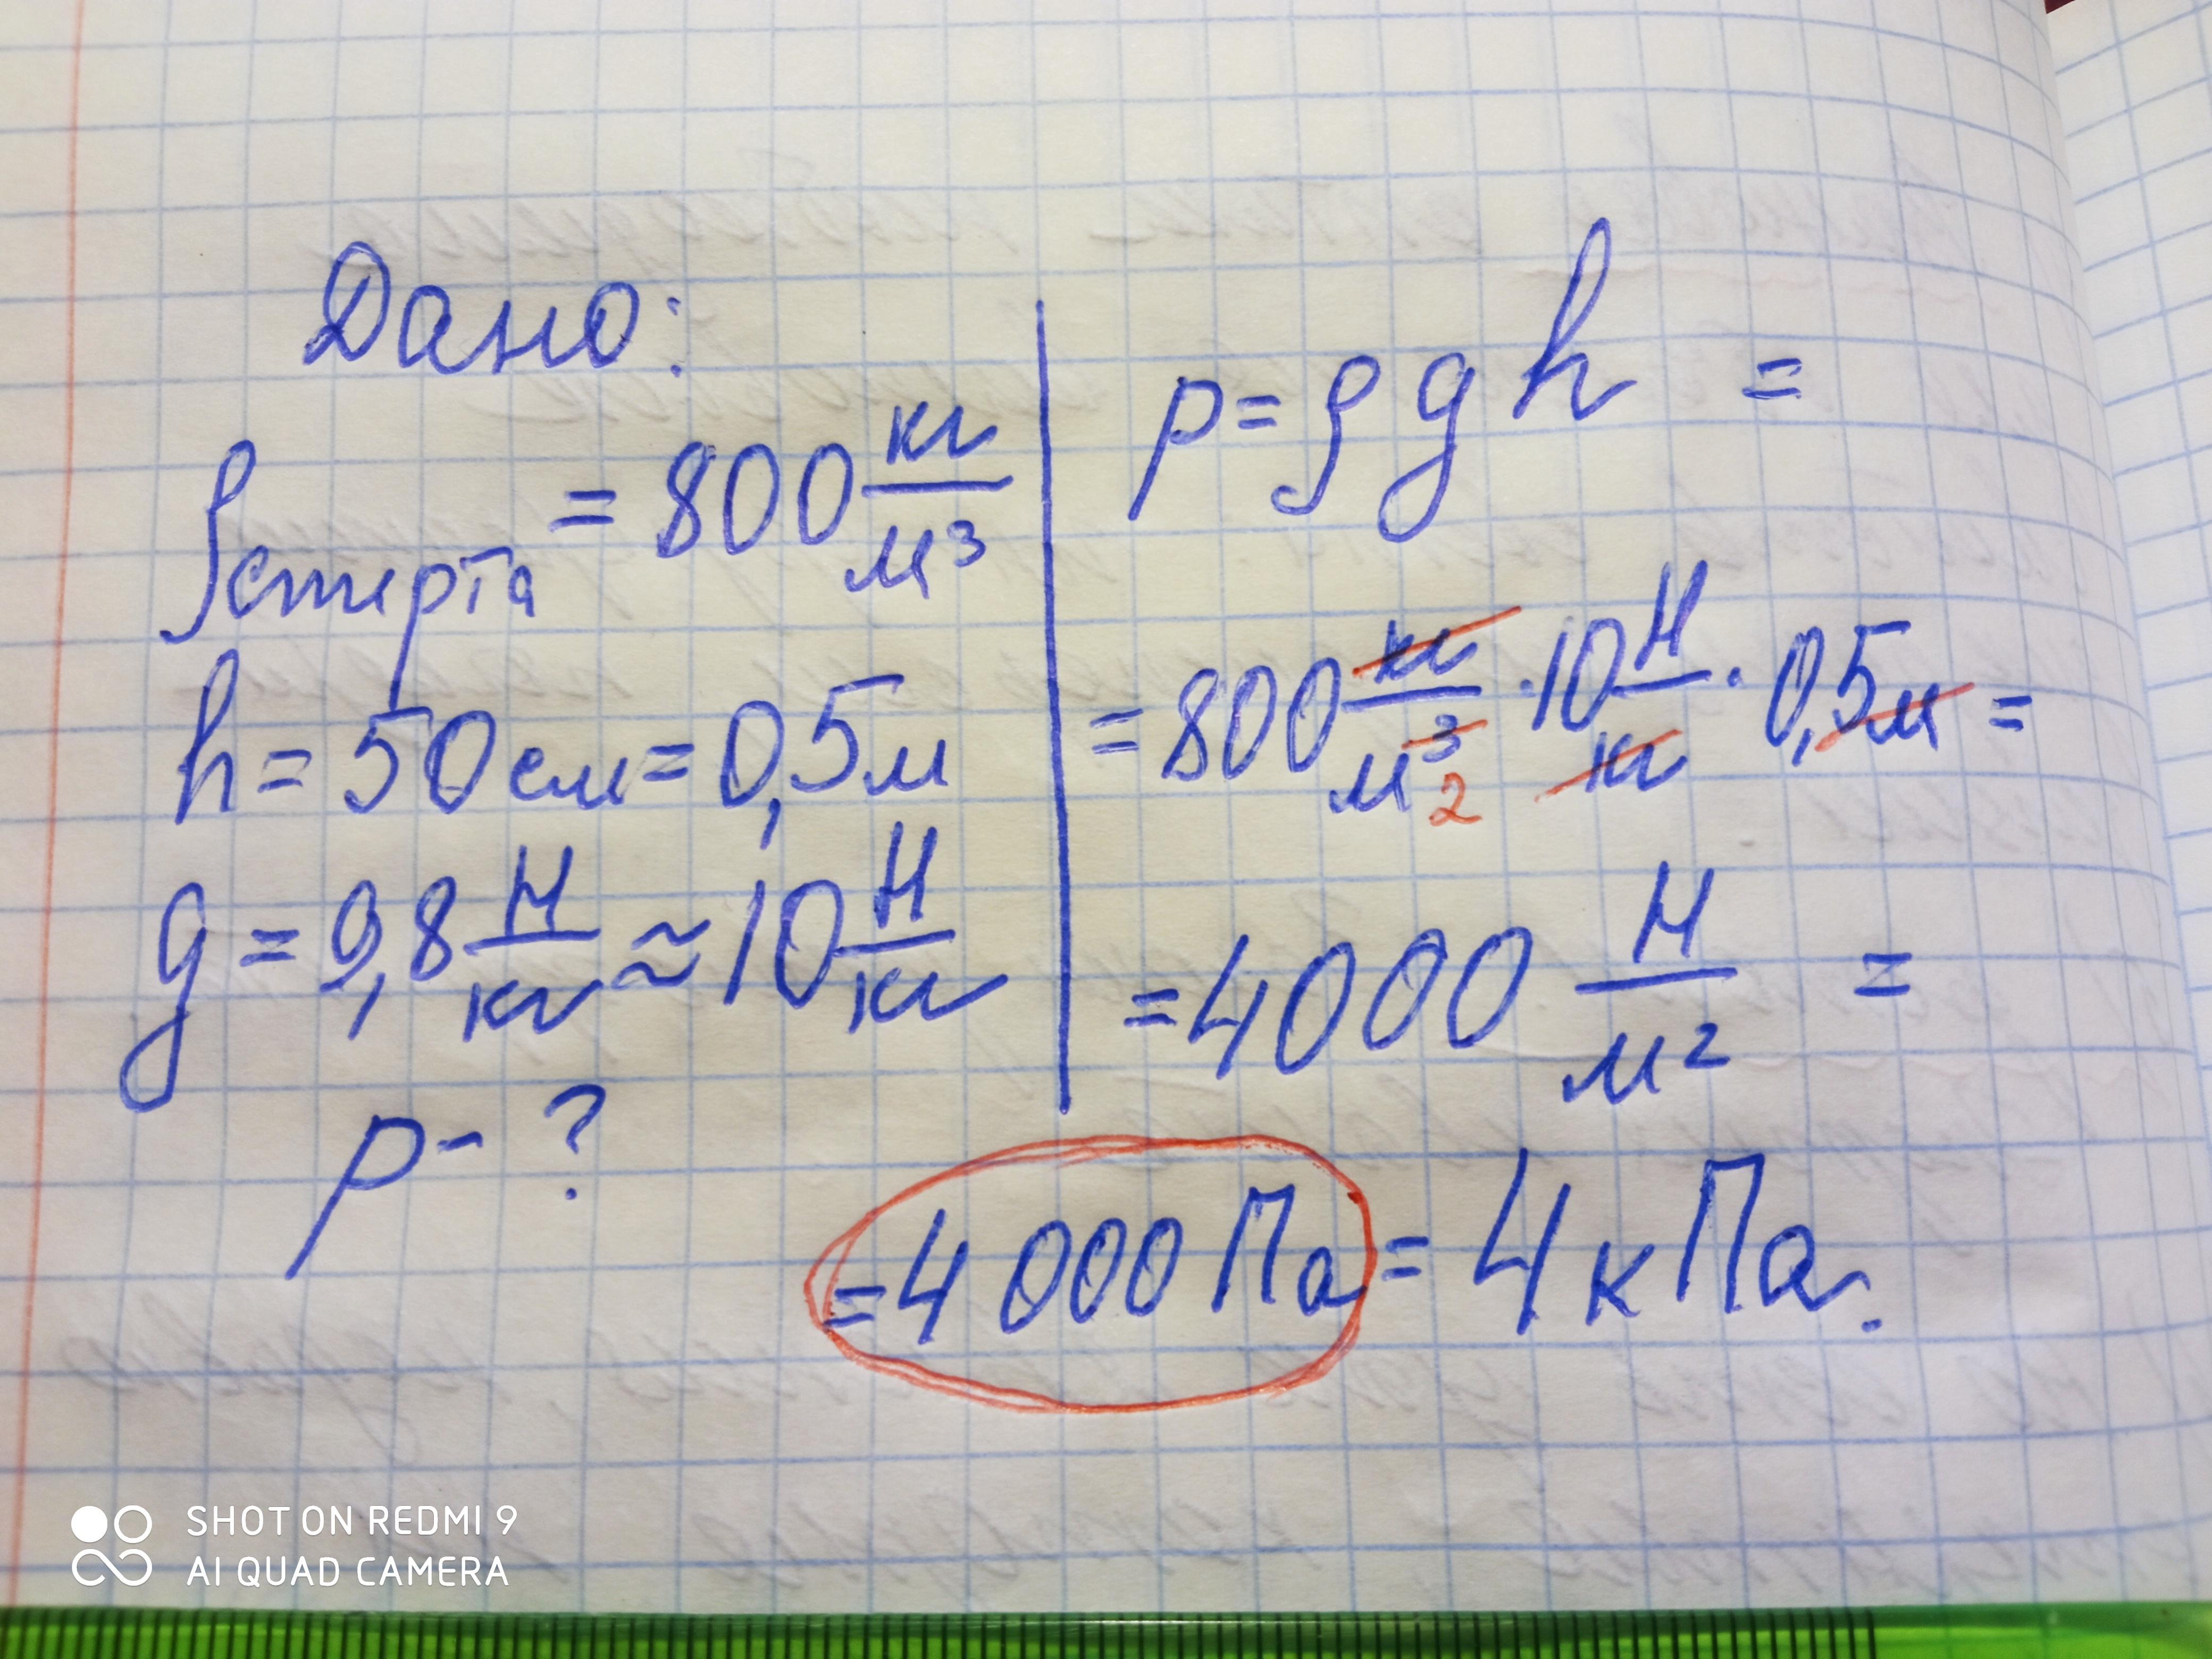 Дано:
ρспирта = 800 кг/м³
h = 50 см = 0,5 м
g = 9,8 Н/кг ≈ 10 Н/кг
p - ?
p = ρ g h =
= 800 кг/м³ 2 · 10 Н/кг · 0,5 м =
= 4000 Н/м² =
= 4000 Па = 4 кПа.
SHOT ON REDMI 9
AI QUAD CAMERA